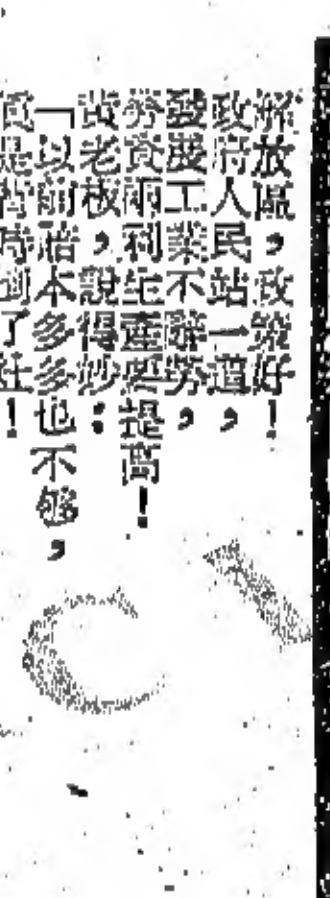 解放區，政策好！
政府人民站一道，
發展工業不辭勞，
勞資兩利生產要提高！
黄老板，說得妙：
「以前賠本多多也不够，
這是暫時到了好！